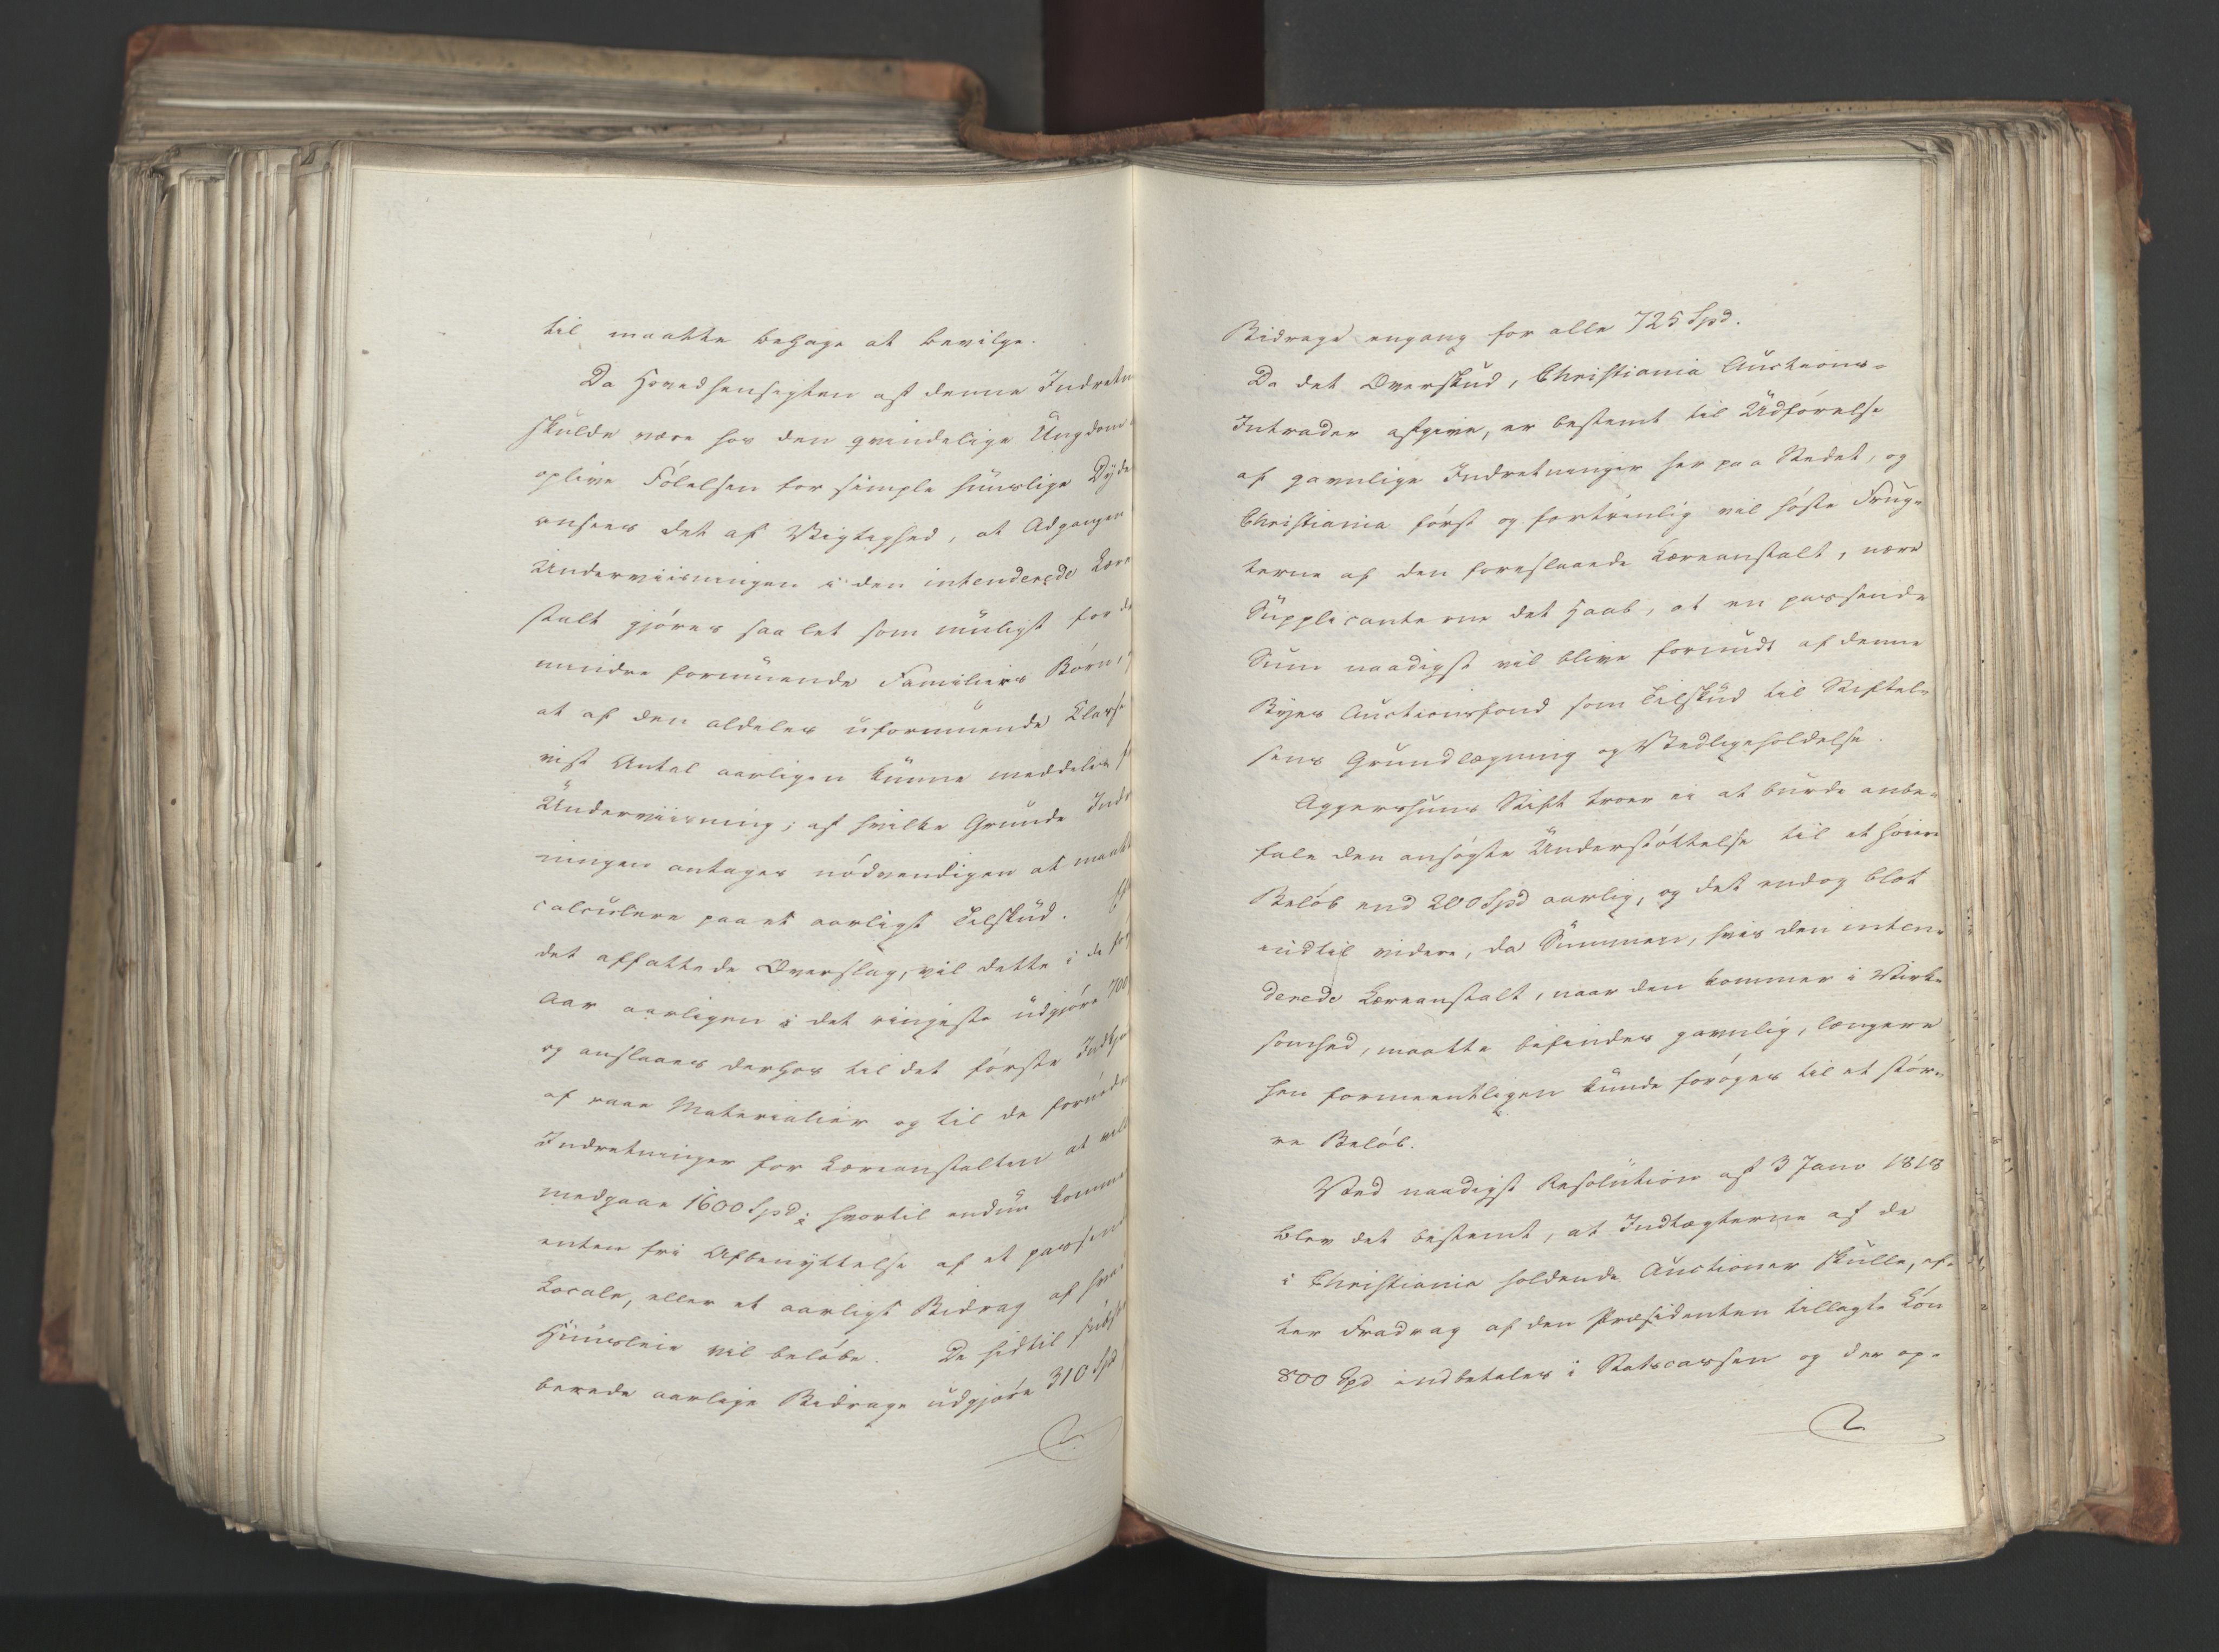 til maatte behage at bevilge.
Da Hovedhensigten af denne Indretn
skulde være hos den qvindelige Ungdom
oplive Følelsen for simple huuslige Dyde
ansees det af Vigtighed, at Adgangen
Underviisningen i den intenderede Lære
stalt gjøres saa let som muligt for de
mindre formuende Familiers Børn,
at af den aldeles uformuende Classe
vist Antal aarligen kunne meddeles f
Underviisning; af hvilke Grunde Indr
ningen antages nødvendigen at maatt
calculere paa et aarligt Tilskud. Ef
det affattede Overslag, vil dette i de før
Aar aarligen i det ringeste udgjøre 700
og anslaaes derhos til det første Indkjø
af raae Materialier og til de fornødn
Indretninger for Læreanstalten at vil
medgaae 1600 Spd; hvortil endnu komme
enten fri Afbenyttelse af et passend
Locale, eller et aarligt Bidrag af hvad
Huusleie vil beløbe. De hidtil subscri
berede aarlige Bidrage udgjøre 310 Spd
Bidrage engang for alle 725 Spd.
Da det Overskud, Christiania Auctions-
Intrader afgive, er bestemt til Udførelse
af gavnlige Indretninger her paa Stedet, og
Christiania først og fortrinlig vil høste Frug-
terne af den foreslaaede Læreanstalt, nære
Supplicanterne det Haab, at en passende
Sum naadigst vil blive forundt af denne
Byes Auctionsfond som Tilskud til Stiftel-
sens Grundlægning og Vedligeholdelse.
Aggershuus Stift troer ei at burde anbe-
fale den ansøgte Understøttelse til et høiere
Beløb end 200 Spd aarlig, og det endog blot
indtil videre, da Summen, hvis den inten-
derede Læreanstalt, naar den kommer i Virk-
somhed, maatte befindes gavnlig, længere
hen formeentligen kunde forøges til et stør-
re Beløb.
Ved naadigst Resolution af 3 Janr 1818
blev det bestemt, at Indtægterne af de
i Christiania holdende Auctioner skulle, ef-
ter Fradrag af den Præsidenten tillagte Løn
800 Spd indbetales i Statscassen og der op-